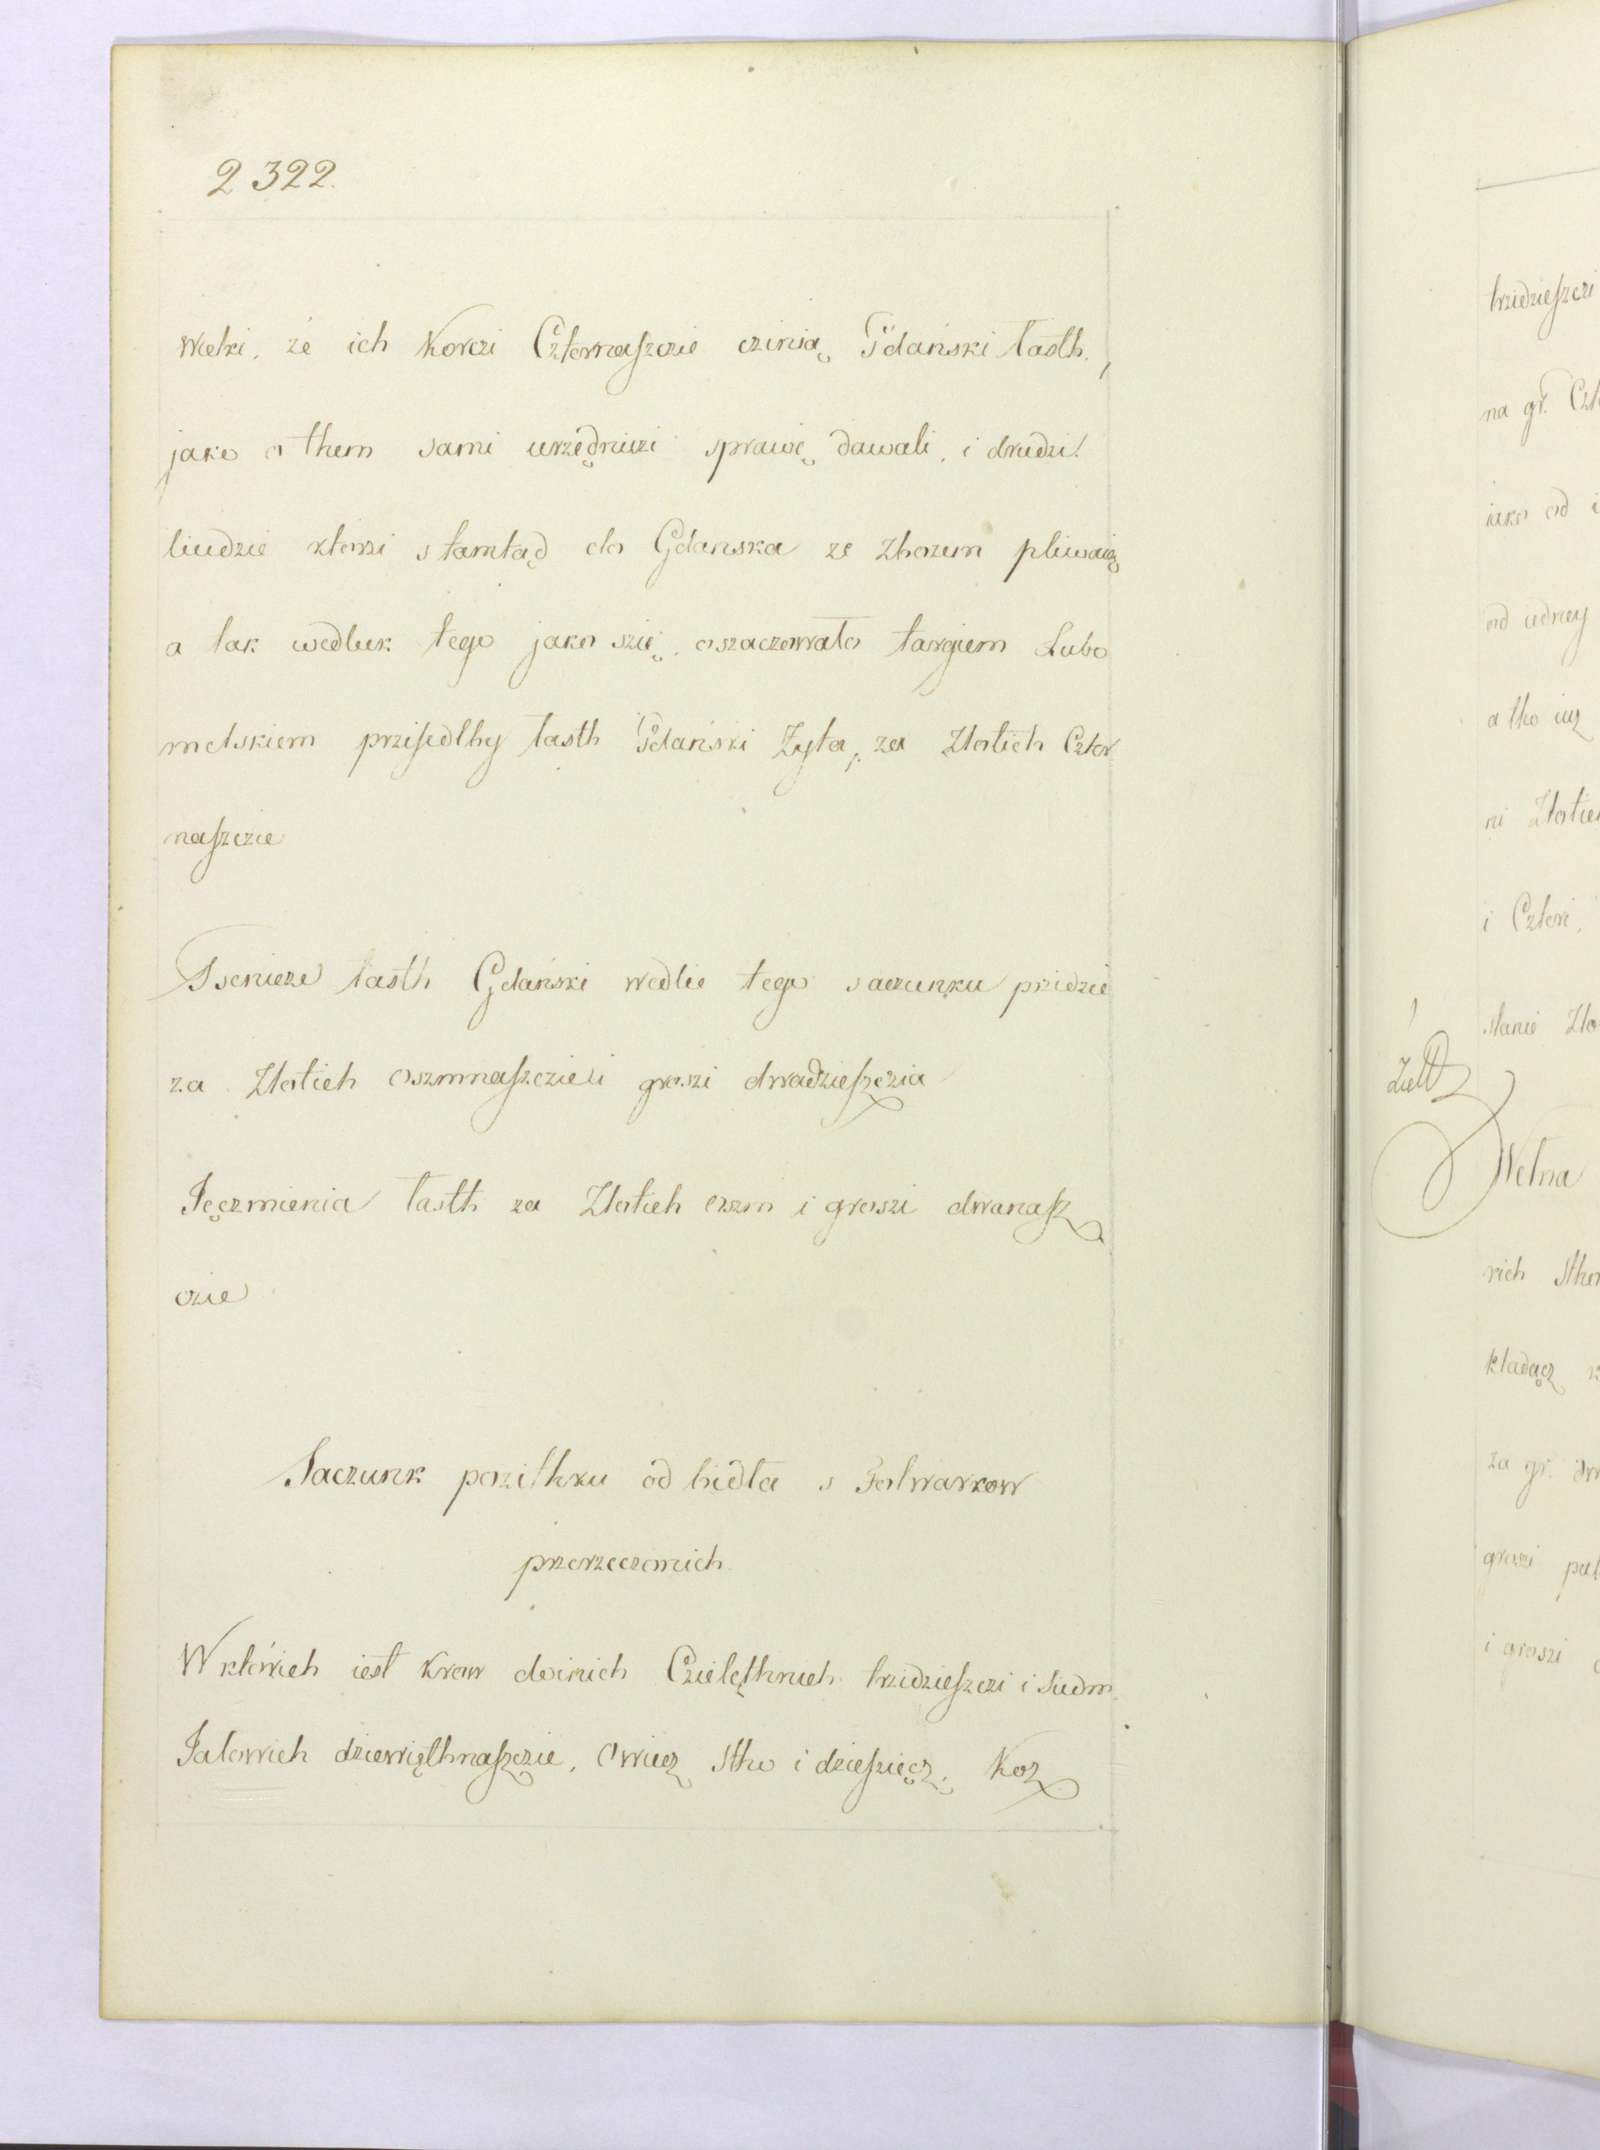 2322.
wielki, że ich Korczi Czternaszczie czinią Gdański łasth,
jako o them sami urzędniczi sprawię dawali, i drudzi
liudzie ktorzi stamtąd do Gdanska ze zbozem pliwaią
a tak wedluk tego jako szię oszaczowało targiem Lubo
melskiem przisedłby łasth Gdański Zyta, za Złotich Czter
naszczie
Psenicze łasth Gdański wedlie tego saczunku przidzie
za Złotich oszmnaszczie i groszi dwadzieszczia
Jęczmienia łasth za Złotich oszm i groszi dwanasz
czie
Saczunk pozithku od bidła s Folwarkow
przerzeczonich
W ktorich iest Krow doinich Czielęthnich trzidzieszczi i siedm
Jalowich dziewięthnaszczie, Owiecz stho i dziesziecz, Koz
trzidzieszczi
na gr. Czt
iako od i
od iedney
a tho iuz
ni Złotich
i Czteri,
stanie Zło
Wełna
rich sthor
kładącz k
za gr. dw
groszi puł
i groszi